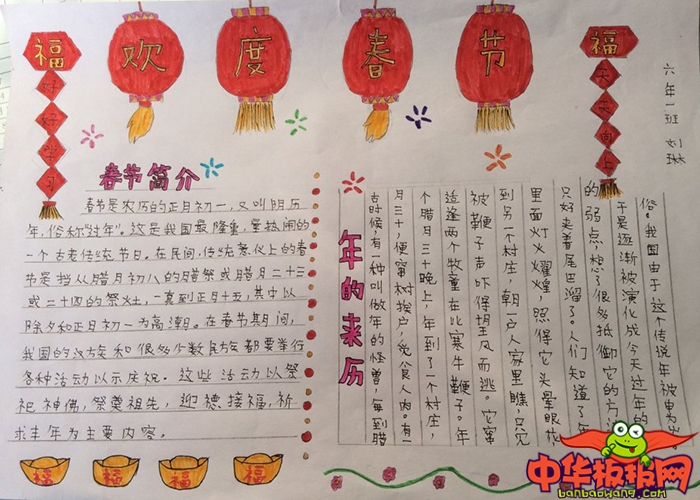 欢度春节
福
好好学习
福
天天向上
六年一班 刘琳
春节简介
春节是农历的正月初一，又叫阴历
年，俗称“过年”。这是我国最隆重，最热闹的
一个古老传统节日。在民间，传统意义上的春
节是指从腊月初八的腊祭或腊月二十三
或二十四的祭灶，一直到正月十五，其中以
除夕和正月初一为高潮。在春节期间，
我国的汉族和很多少数民族都要举行
各种活动以示庆祝。这些活动以祭
祀神佛，祭奠祖先，迎禧接福，祈
求丰年为主要内容。
年的来历
古时候，有一种叫做年的怪兽，每到腊
月三十，便窜村挨户，觅食人肉。有一
个腊月三十晚上，年到了一个村庄，
适逢两个牧童在比赛牛鞭子。年
被鞭子声吓得望风而逃。它窜
到另一个村庄，朝一户人家里瞧，只见
里面灯火耀煌，照得它头晕眼花
只好夹着尾巴溜了。人们知道了年
的弱点，想了很多抵御它的方法
于是逐渐被演化成今天过年的
俗。我国由于这个传说年被
福
福
福
福
中华板报网
banbaowang.com